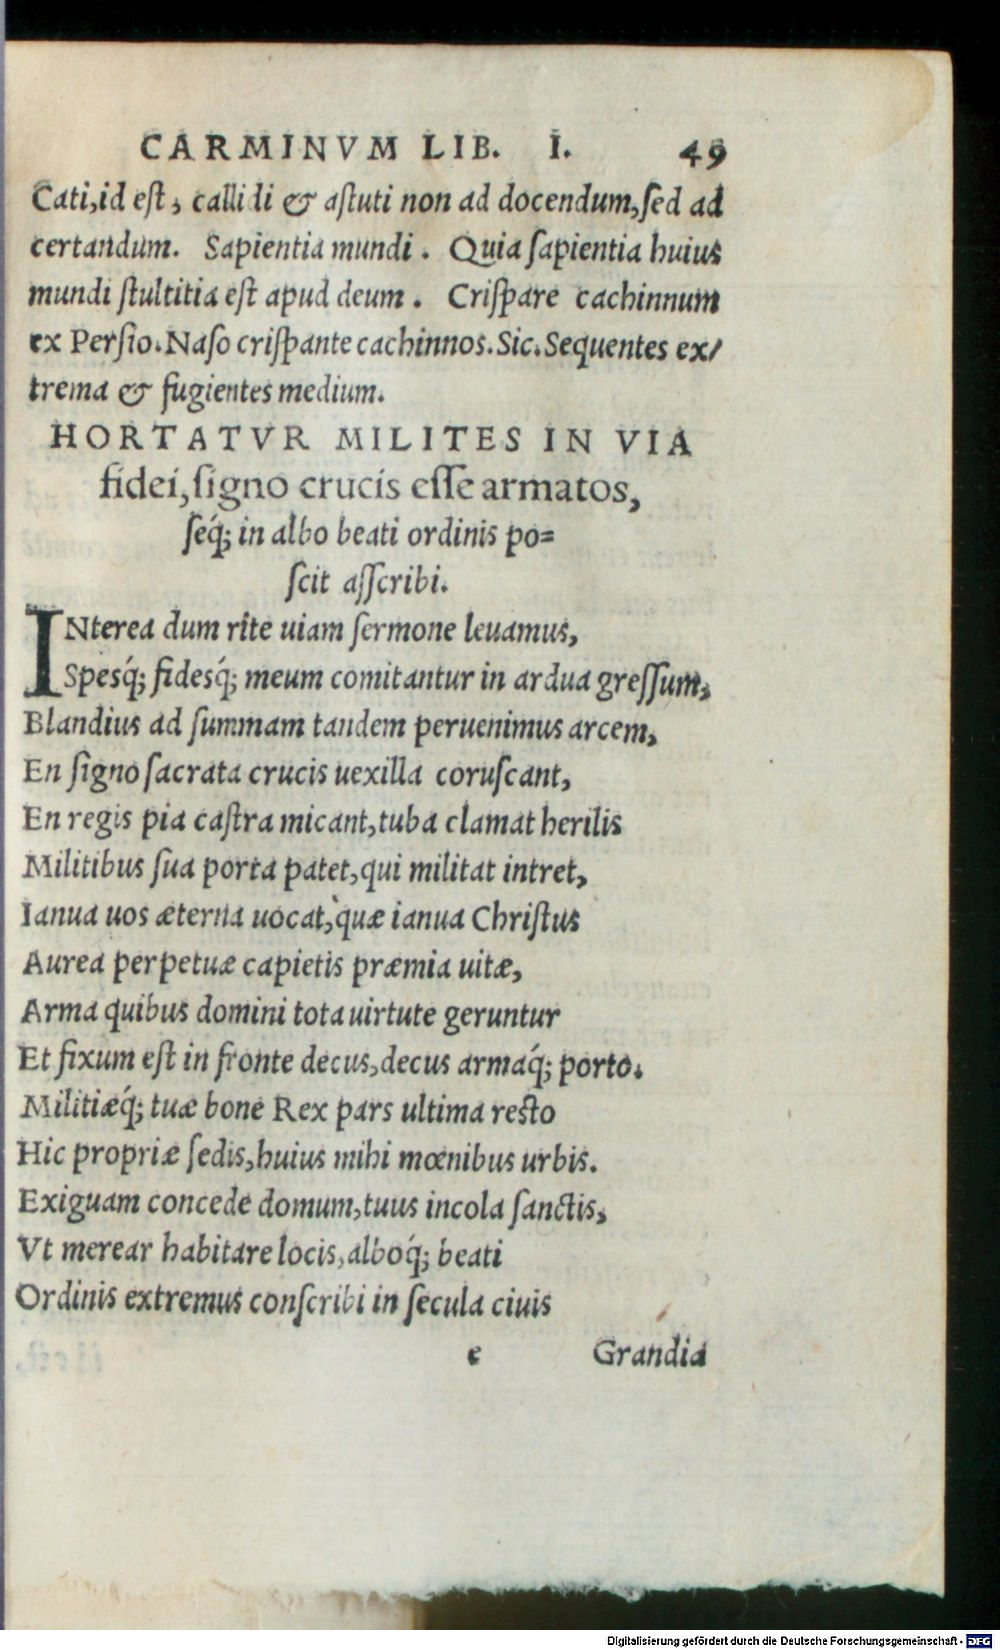 CARMINVM LIB. I. 49
Cati,id eſt, callidi & aſtuti non ad docendum,ſed ad
certandum. Sapientia mundi. Quia ſapientia huius
mundi ſtultitia eſt apud deum. Criſpare cachinnum
ex Perſio.Naſo criſpante cachinnos.Sic.Sequentes ex/
trema & fugientes medium.
HORTATVR MILITES IN VIA
fidei,ſigno crucis eſſe armatos,
ſeq́; in albo beati ordinis po=
ſcit aſſcribi.
INterea dum rite uiam ſermone leuamus,
Speſq́; fideſq́; meum comitantur in ardua greſſum,
Blandius ad ſummam tandem peruenimus arcem,
En ſigno ſacrata crucis uexilla coruſcant,
En regis pia caſtra micant,tuba clamat herilis
Militibus ſua porta patet,qui militat intret,
Ianua uos æterna uocat,quæ ianua Chriſtus
Aurea perpetuæ capietis præmia uitæ,
Arma quibus domini tota uirtute geruntur
Et fixum eſt in fronte decus,decus armaq́; porto.
Militiæq́; tuæ bone Rex pars ultima reſto
Hic propriæ ſedis,huius mihi mœnibus urbis.
Exiguam concede domum,tuus incola ſanctis,
Vt merear habitare locis,alboq́; beati
Ordinis extremus conſcribi in ſecula ciuis
e Grandia
Digitalisierung gefördert durch die Deutsche Forschungsgemeinschaft - DFG